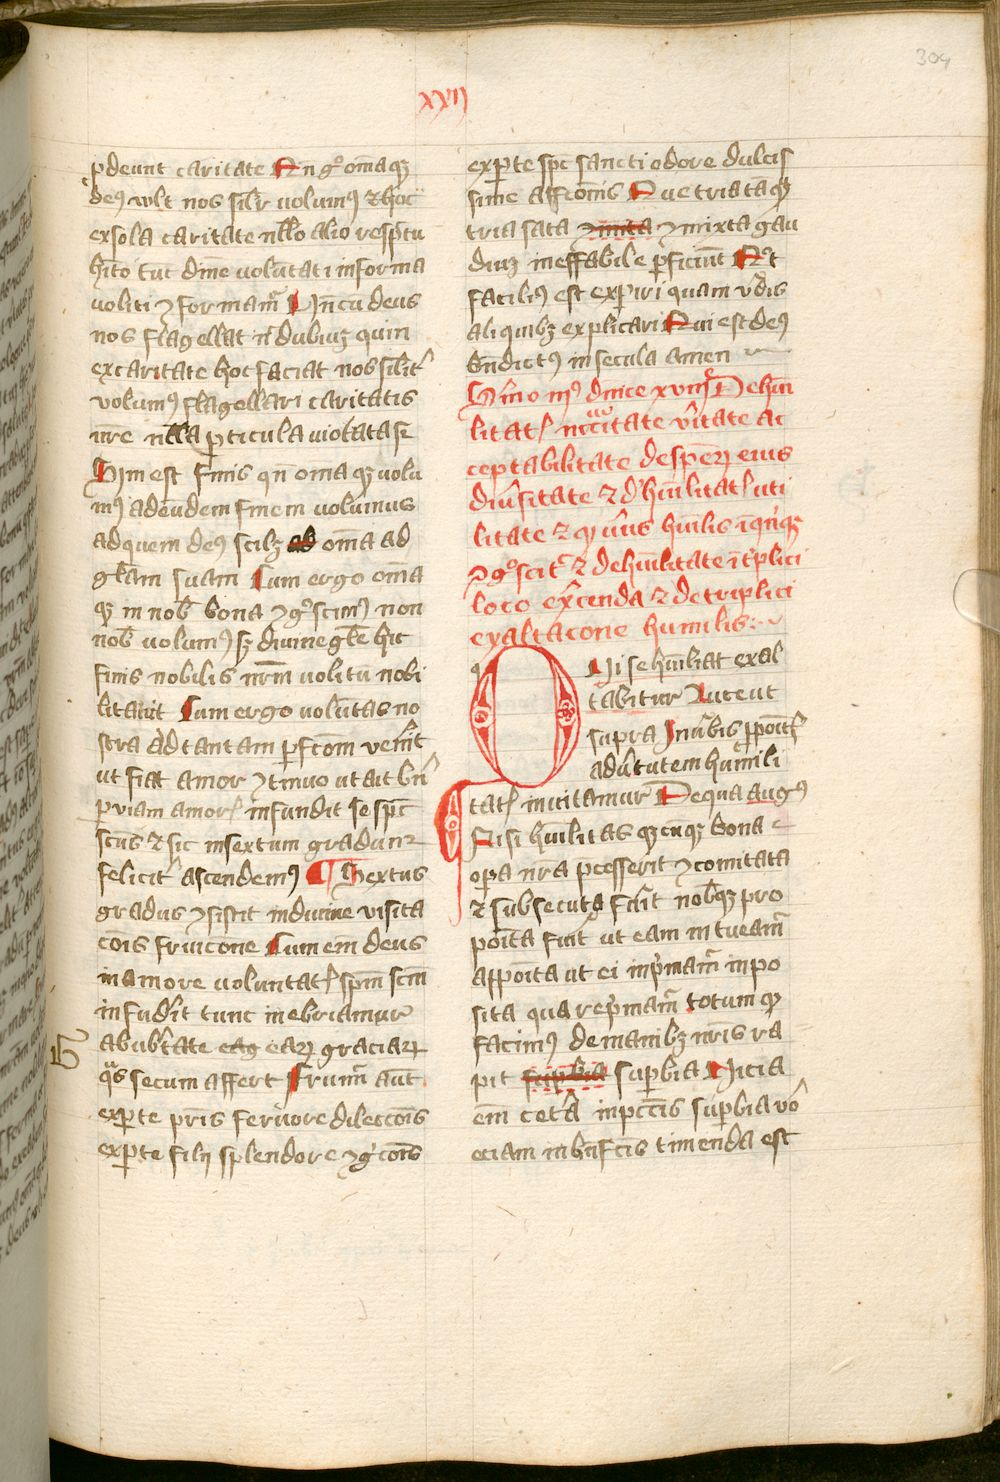 304
xxij
pdeunt caritate In gͦ om̄a qꝫ
deꝰ wlt nos silr̄ volumꝰ ⁊ hoc
ex sola caritate nll̄o alio resp̄tu
hito tūt diīne volūtati informa
voliti ⁊formam̄ Hinc cū deus
nos flagellat n̄ dubiuꝫ quin
ex caritate hoc faciat nos silit̄
volumꝰ flagellari caritatis
nr̄e nlla ꝑticula violata sꝫ
Hīm est finis qn̄ om̄a qꝫ volu
mꝰ ad eūdem finem volumus
ad quem deꝰ scilꝫ om̄a ad
gl̄am suam Cum ergo om̄a
qꝫ in nob̄ bona ⁊gͦscimꝰ non
nob̄ volumꝰ sꝫ divine gl̄e hic
finis nobilis nr̄m volitū nobi
litauit Cum ergo volūtas no
stra ad tantam ꝑfc̄om ven̄it
ut fiat amor ⁊tinuo ut ait bn̄
ꝑ viam amorꝭ infundit se sp̄c
sc̄us ⁊ sic in sextum gradum
felicit̄ ascendemꝰ ¶ Sextus
gradus ⁊sistit in divine visita
cōis fruicone Cum em̄ deus
in amore voluntatꝭ sp̄m sc̄m
infudit tunc inebriamur
ab ub̄tate eaꝝ graciaꝝ
qͣs secum affert Frum̄ aūt
ex ꝑte pr̄is feruore dilecc̄ōis
ex ꝑte filij splendore ⁊gͥcōis
ex ꝑte sp̄c sancti odore dulcis
sime affc̄ōnis Que tria tāqꝫ
tria sata ⁊mixta gau
diuꝫ ineffabile ꝑficiūt Et
faciliꝰ est exꝑiri quam v̄bis
aliquibꝫ explicari Qui est deꝰ
bn̄dictꝰ in secula amen
Sermo dnīce xviij De hūi
litatꝭ ncc̄itate v̄itate ac
ceptabilitate de spēꝝ eius
diu̇sitate ⁊ d' hūilitatꝭ uti
litate ⁊ qꝫ v̄us hūilis
⁊gͦscit̄ ⁊ de hūilitate ī tͥplici
loco ex̄cenda ⁊ de triplici
exaltac̄one humilis
Qui se hūiliat exal
tabitur Luce ut
supra In v̄bis ꝓpoīt̄
ad v̄tutem humili
tatꝭ invitamur De qua augꝰ
Nisi hūilitas qꝫcūqꝫ bona
opa nr̄a pcesserit ⁊comitata
⁊ subsecuta fuīt nobꝫqꝫ pro
poīta sint ut eam intueam̄
appoīta ut ei inp̄mam̄ inpo
sita qua rep̄mam̄ totum qꝫ
facimꝰ de manibꝫ nr̄is ra
pit suꝑbia suꝑbia Vicia
em̄ cet̄a in pcc̄is suꝑbia vō
eciam in bn̄fc̄is timenda est